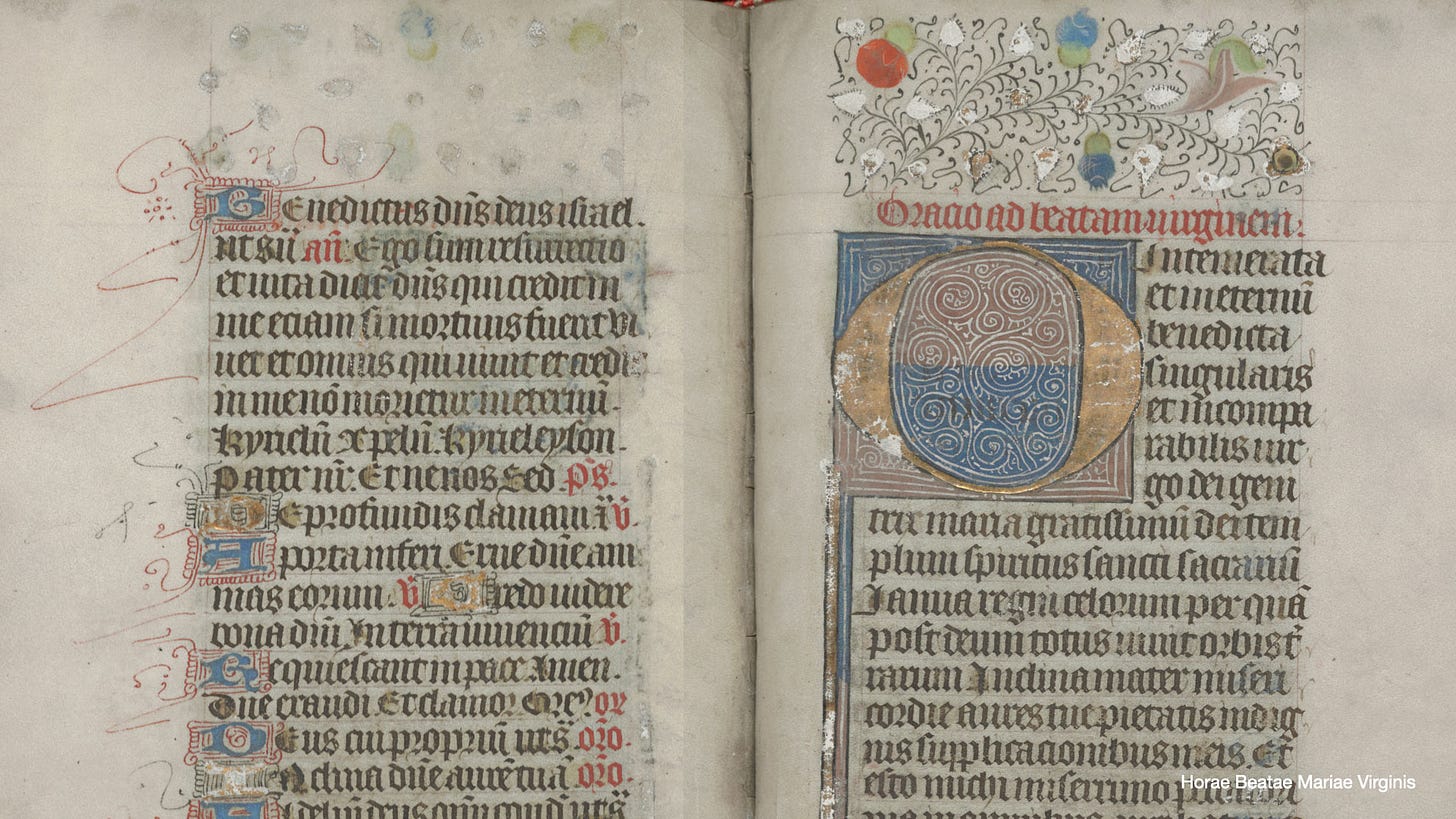 Benedictus dn̄s deus israel.
ut sū añ. Ego sum resurrectio
et vita dicit dn̄s qui credit in
me eciam si mortuus fuerit vi
vet et omnis qui vivit et credi
in me nō morietur in eternū.
kyriel'n xp̄el'n. kyrieleyson.
Pater nr̄. Et ne nos Sed ps̄.
De profundis clamavi v̄.
A porta inferi. Erue dn̄e am
mas eorum. v̄ Credo videre
bona dn̄i In terra viuenciū v̄.
Requiescant in pace. Amen.
Dn̄e exaudi Et clamor Ore' or
Deus cui propriū uts̄ oro.
Inclina dn̄e aurē tuā oro.
Fideliū deus oīm uts̄
Oracio ad beatam virginem.
O Intemerata
et in eternū
benedicta
singularis
et incompa
rabilis vir
go dei geni
trix maria gratissimū dei tem
plum spiritus sancti sacrariū
Ianua regni celorum per quā
post deum totus vivit orbis t'
rarum Inclina mater miseri
cordie aures tue pietatis indig
nis supplicacionibus meis. Et
esto michi miserrimo peccatori
Horae Beatae Mariae Virginis